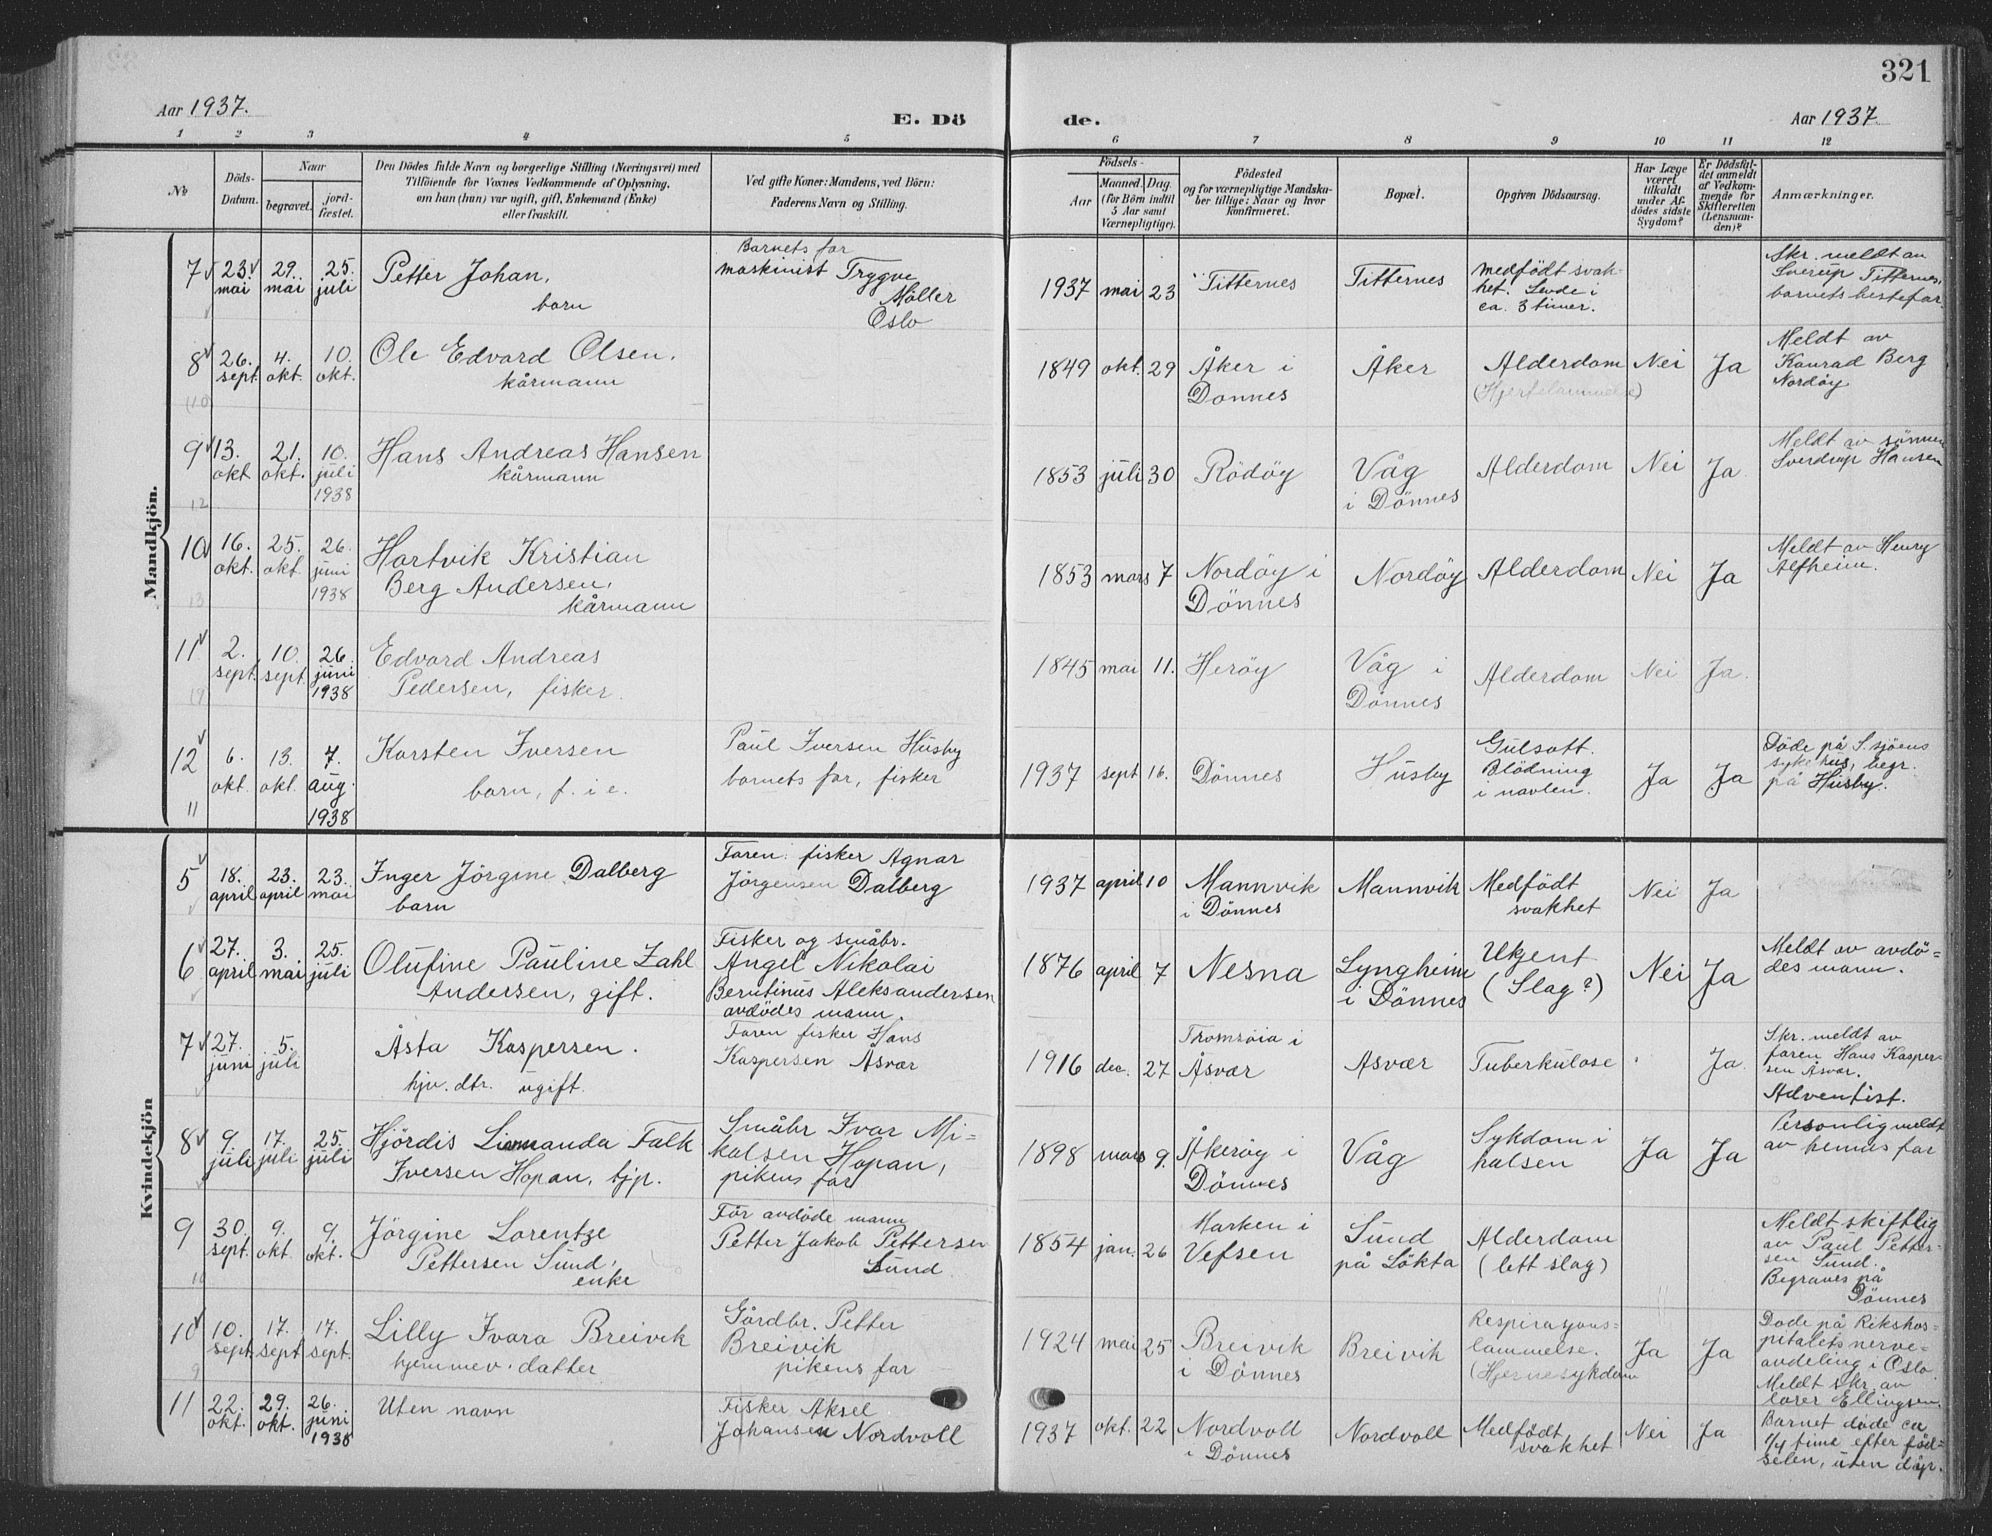 321
Aar 1937.
E. Dö
de.
Aar 1937
1 2 3 4 5 6 7 8 9 10 11 12
No
Döds-
Datum.
Naar
begravet.
jord-
fæstet.
Den Dödes fulde Navn og borgerlige Stilling (Næringsvei) med
Tilföiende for Voxnes Vedkommende af Oplysning,
om han (hun) var ugift, gift, Enkemand (Enke)
eller fraskilt.
Ved gifte Koner: Mandens, ved Börn:
Faderens Navn og Stilling.
Födsels-
Aar
Maaned. Dag.
(for Börn indtil
5 Aar samt
Værnepligtige).
Födested
og for værnepligtige Mandska-
ber tillige: Naar og hvor
konfirmeret.
Bopæl.
Opgiven Dödsaarsag.
Har Læge
været
tilkaldt
under Af-
dödes sidste
Sygdom?
Er Dödsfal-
det anmeldt
af Vedkom-
mende for
Skifteretten
(Lensman-
den)?
Anmærkninger.
Mandkjön.
7
23
mai
29.
mai
25.
juli
Petter Johan,
barn
Barnets far
maskinist Trygve
Möller
Oslo
1937 mai 23
Titternes
Titternes
medfödt svak-
het. Levde i
ca. 3 timer.
Skr. meldt av
Titternes,
barnets bestefar.
8
(10
26.
sept.
4.
okt.
10.
okt.
Ole Edvard Olsen,
kårmann
1849 okt. 29
Åker i
Dönnes
Åker
Alderdom
(Hjertelammelse)
Nei
Ja
Meldt av
Konrad Berg
Nordöy
9
12
13.
okt
21.
okt.
10.
juli
1938
Hans Andreas Hansen
kårmann
1853 juli 30
Rödöy
Våg
i Dönnes
Alderdom
Nei
Ja
Meldt av sönnen
Sverdrup Hansen
10
13
16.
okt.
25.
okt.
26.
juni
1938
Hartvik Kristian
Berg Andersen,
kårmann
1853 mars 7
Nordöy i
Dönnes
Nordöy
Alderdom
Nei
Ja
Meldt av Henry
Alfheim.
11
2.
sept.
10.
sept.
26.
juni
1938
Edvard Andreas
Pedersen, fisker.
1845 mai 11.
Heröy
Våg i
Dönnes
Alderdom
Nei
Ja.
12
11
6.
okt.
13.
okt.
7.
aug.
1938
Karsten Iversen
barn, f. i e.
Paul Iversen Husby
barnets far, fisker
1937 sept 16.
Dönnes
Husby
Gulsott.
Blödning
i navlen.
Ja
Ja
Döde på S.sjöens
sykehus, begr.
på Husby.
Kvindekjön
5
18.
april
23.
april
23.
mai
Inger Jörgine Dalberg
barn
Faren: fisker Agnar
Jörgensen Dalberg
1937 april 10
Mannvik
i Dönnes
Mannvik
Medfödt
svakhet
Nei
Ja
6
27.
april
3.
mai
25.
juli
Olufine Pauline Zahl
Andersen, gift.
Fisker og småbr.
Angel Nikolai
Berntinus Aleksandersen
avdödes mann.
1876 april 7
Nesna
Lyngheim
i Dönnes
Ukjent
(Slag?)
Nei
Ja
Meldt av avdö-
des mann.
7
27.
juni
5.
juli
Åsta Kaspersen.
hjv. dtr. ugift.
Faren fisker Hans
Kaspersen Åsvær
1916 dec. 27
Tromsöia i
Åsvær
Asvær
Tuberkulose
Ja
Skr. meldt av
faren Hans Kasper-
sen Åsvær.
Adventist.
8
9.
juli
17.
juli
25.
juli
Hjördis Falk
Iversen Hopan, tjp.
Småbr Ivar Mi-
kalsen Hopan,
pikens far
1898 mars 9.
Åkeröy i
Dönnes
Våg
Sykdom i
halsen
Ja
Ja
Personlig meldt
av hennes far
9
10
30.
sept.
9.
okt.
9.
okt.
Jörgine Lorentze
Pettersen Sund,
enke
För avdöde mann
Petter Jakob Pettersen
Sund.
1854 jan. 26
Marken i
Vefsen
Sund
på Lökta
Alderdom
(lett slag)
Meldt skriftlig
av Paul Petter-
sen Sund.
Begraves på
Dönnes
10
9
10.
sept.
17.
sept
17.
sept.
Lilly Ivara Breivik
hjemmev. datter
Gårdbr. Petter
Breivik
pikens far
1924 mai 25
Breivik
i Dönnes
Breivik
Respirasjons-
lammelse.
(Hjernesykdom
Ja
Ja
Döde på Rikshos-
pitalets nerve-
avdeling i Oslo.
Meldt skr. av
lærer Ellingsen.
11
22.
okt.
29.
okt.
26.
juni
1938
Uten navn
Fisker Aksel
Johansen Nordvoll
1937 okt. 22
Nordvoll
i Dönnes
Nordvoll
Medfödt
svakhet
Nei
Ja
Barnet döde ca
1/4 time efter föd-
selen, uten dåp.